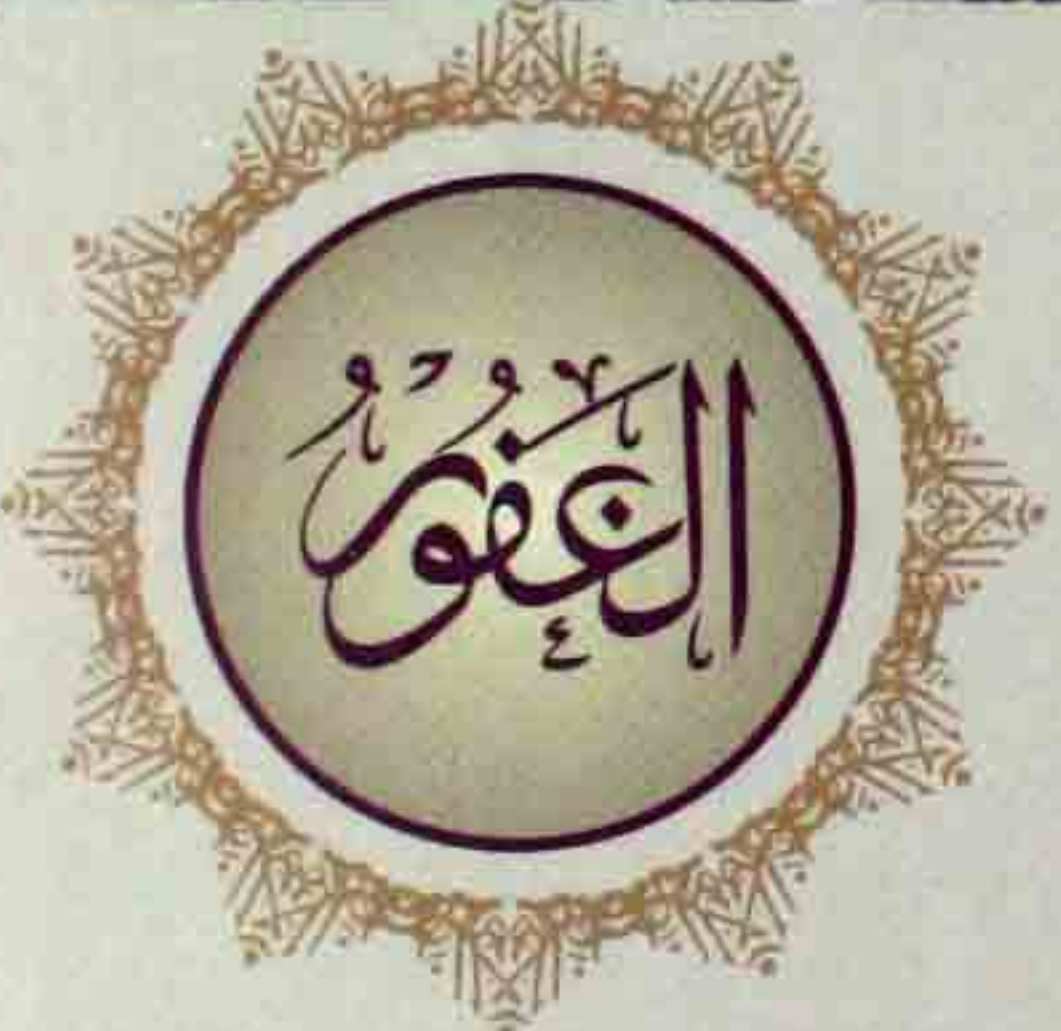 الْغَفُورُ